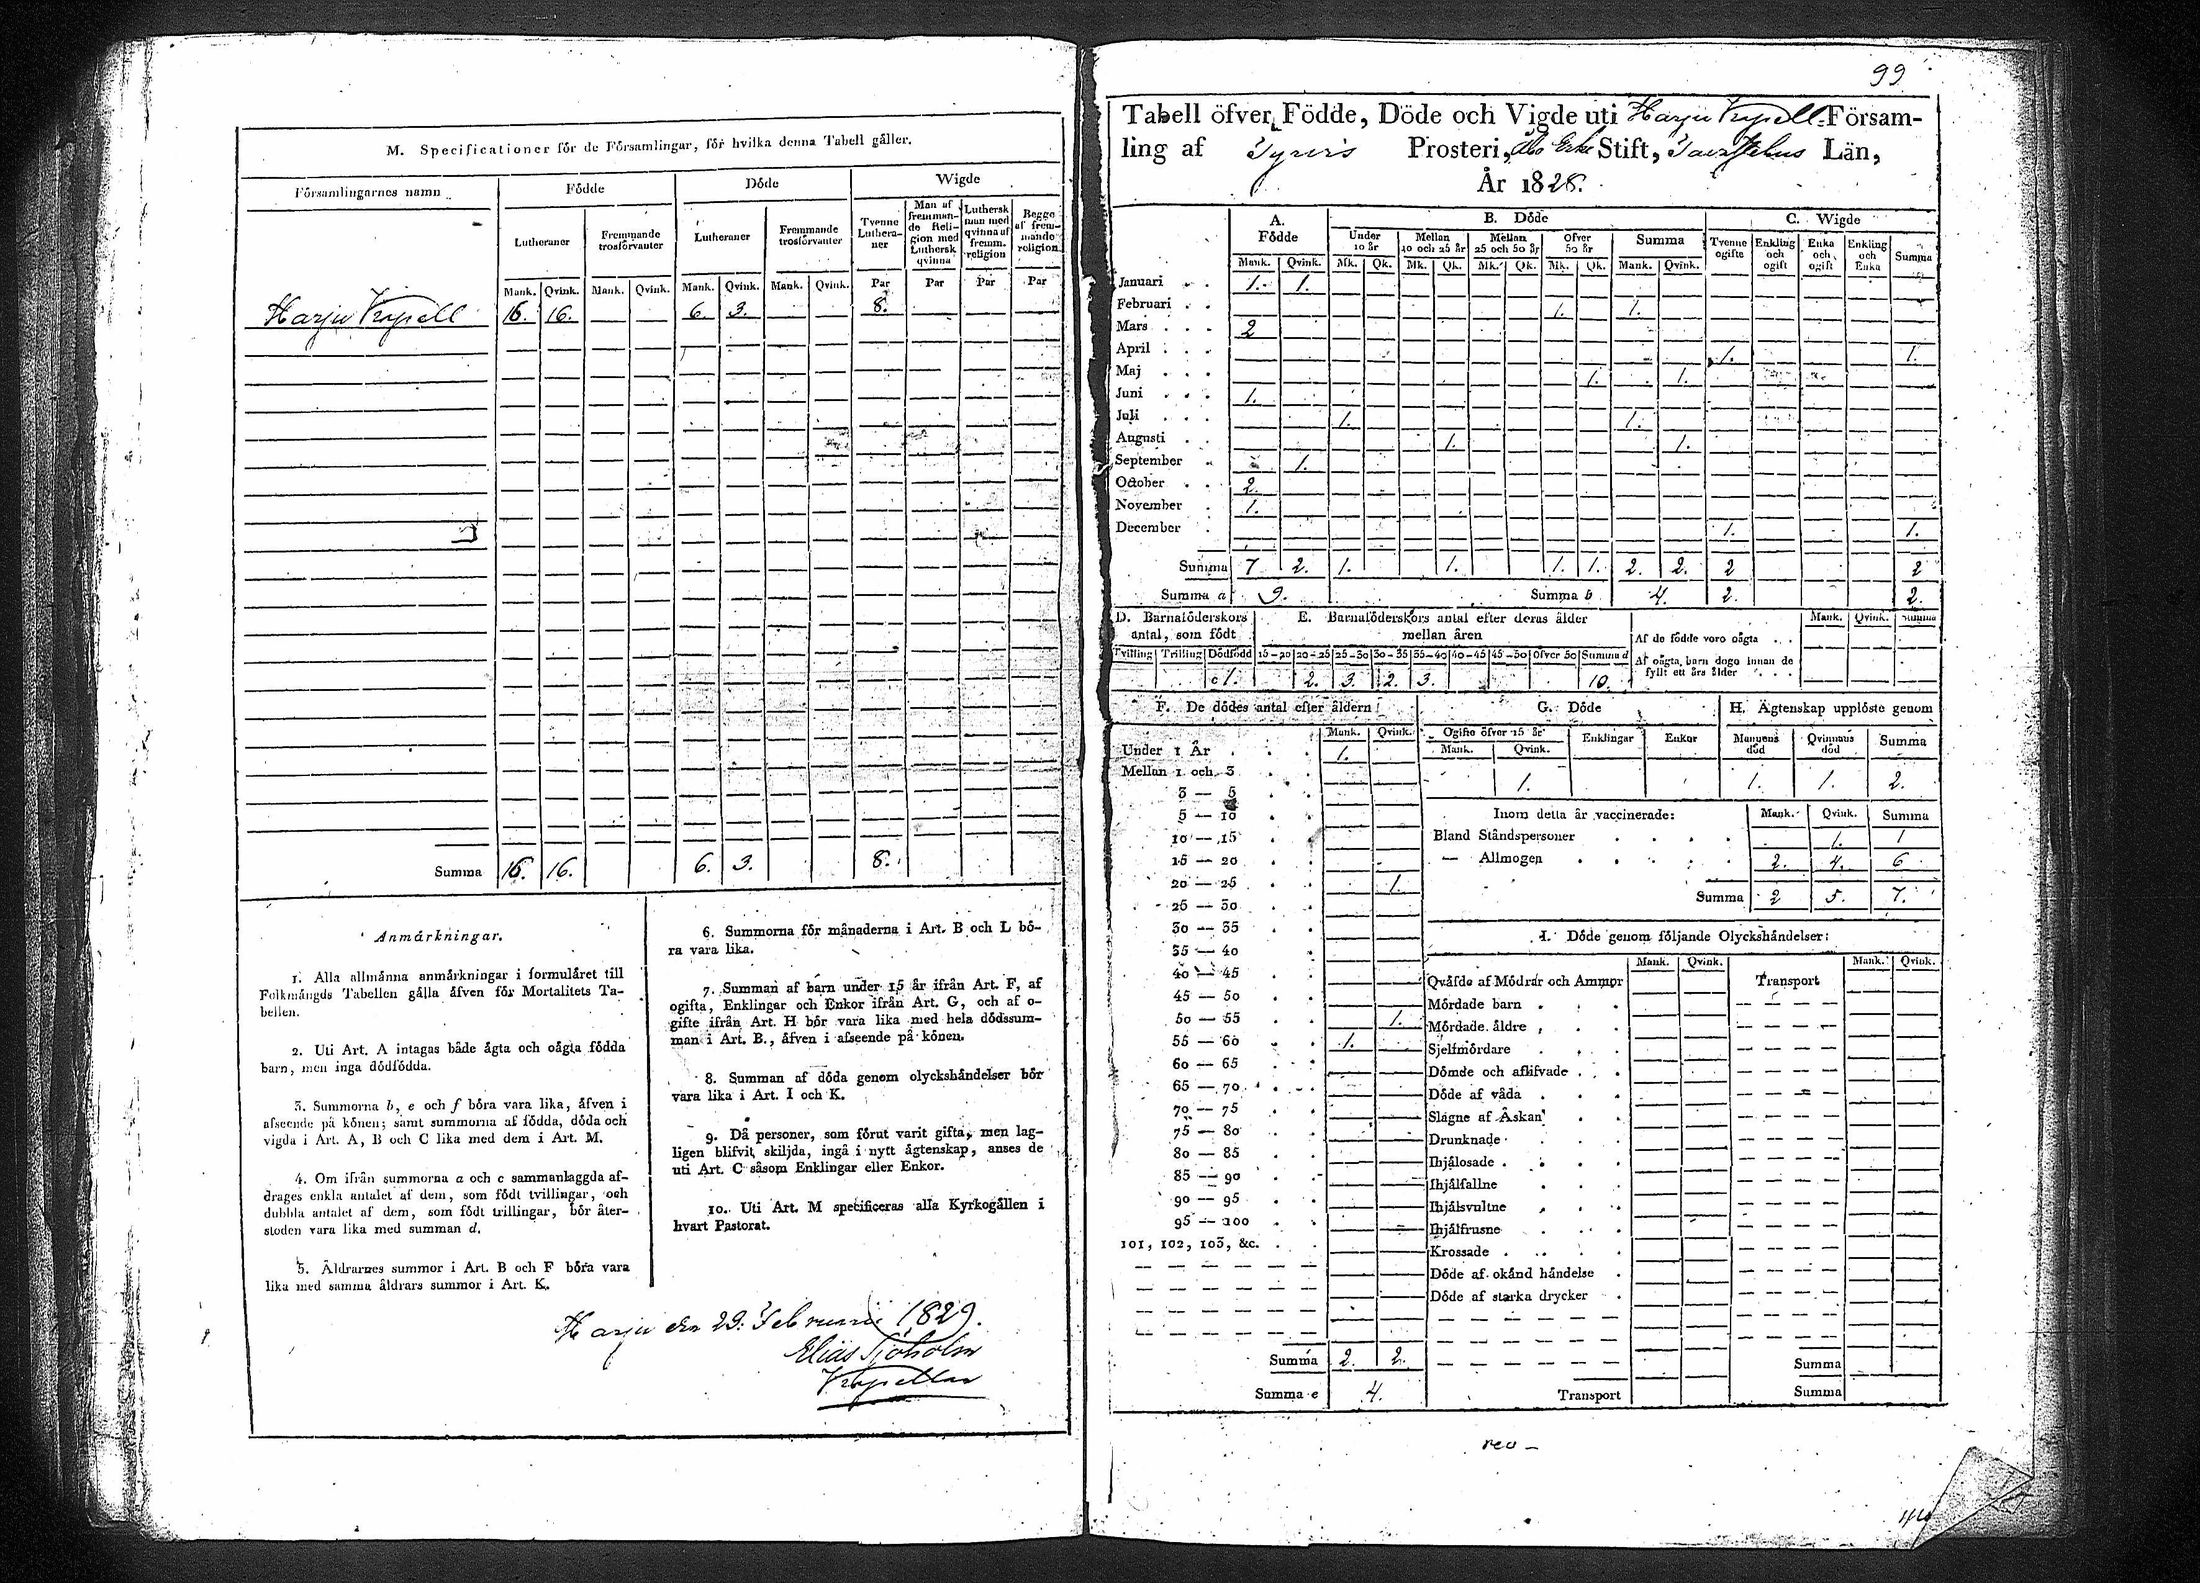 M. Specificationer för de Församlingar, för hvilka denna Tabell gäller.
Församlingarnes namn
Födde
Döde
Wigde
Lutheraner
Fremmande trosförvanter
Lutheraner
Fremmande trosförvanter
Tvenne Lutheraner
Man af fremmande Religion med Luthersk qvinna
Luthersk man med qvinna af fremm. religion
Begge af fremmande religion
Mank. Qvink. Mank. Qvink. Mank. Qvink. Mank. Qvink. Par Par Par Par
Harju Kapell 16. 16. 6. 3. 8.
Summa 16. 16. 6. 3. 8.
Anmärkningar.
1. Alla allmänna anmärkningar i formuläret till
Folkmängds Tabellen gälla äfven för Mortalitets Ta-
bellen.
2. Uti Art. A intagas både ägta och oägta födda
barn, men inga dödfödda.
3. Summorna b, e och f böra vara lika, äfven i
afseende på könen; samt summorna af födda, döda och
vigda i Art. A, B och C lika med dem i Art. M.
4. Om ifrån summorna a och c sammanlaggda af-
drages enkla antalet af dem, som födt tvillingar, och
dubbla antalet af dem, som födt trillingar, bör åter-
stoden vara lika med summan d.
5. Åldrarnes summor i Art. B och F böra vara
lika med samma åldrars summor i Art. K.
6. Summorna för månaderna i Art. B och L bö-
ra vara lika.
7. Summan af barn under 15 år ifrån Art. F, af
ogifta, Enklingar och Enkor ifrån Art. G, och af o-
gifte ifrån Art. H bör vara lika med hela dödssum-
man i Art. B., äfven i afseende på könen.
8. Summan af döda genom olyckshändelser bör
vara lika i Art. I och K.
9. Då personer, som förut varit gifta, men lag-
ligen blifvit skiljda, ingå i nytt ägtenskap, anses de
uti Art. C såsom Enklingar eller Enkor.
10. Uti Art. M specificeras alla Kyrkogällen i
hvart Pastorat.
Harju den 29. Februarii 1829.
Elias Sjöholm
Kapellan
99
Tabell öfver Födde, Döde och Vigde uti Harju Kapell Försam-
ling af Tyrvis Prosteri, Åbo Erke Stift, Tavastehus Län,
År 1828.
A. Födde
B. Döde
C. Wigde
Under 10 år
Mellan 10 och 25 år
Mellan 25 och 50 år
Öfver 50 år
Summa
Tvenne ogifte
Enkling och ogift
Enka och ogift
Enkling och Enka
Summa
Mank. Qvink. Mk. Qk. Mk. Qk. Mk. Qk. Mk. Qk. Mank. Qvink.
Januari 1. 1.
Februari 1. 1.
Mars 2
April 1. 1.
Maj 1. 1.
Juni 1.
Juli 1. 1.
Augusti 1. 1.
September 1.
October 2.
November 1.
December 1. 1.
Summa 7 2. 1. 1. 1. 1. 2. 2. 2 2
Summa a 9. Summa b 4. 2. 2.
D. Barnaföderskors antal, som födt
Tvilling Trilling Dödfödd
c 1.
E. Barnaföderskors antal efter deras ålder mellan åren
15-20 20-25 25-30 30-35 35-40 40-45 45-50 Öfver 50 Summa d
2. 3. 2. 3. 10.
Mank. Qvink. Summa
Af de födde voro oägta
Af oägta barn dogo innan de
fyllt ett års ålder
F. De dödes antal efter åldern:
Mank. Qvink.
Under 1 År 1.
Mellan 1 och 3
3 — 5
5 — 10
10 — 15
15 — 20
20 — 25 1.
25 — 30
30 — 35
35 — 40
40 — 45
45 — 50
50 — 55 1.
55 — 60 1.
60 — 65
65 — 70
70 — 75
75 — 80
80 — 85
85 — 90
90 — 95
95 — 100
101, 102, 103, &c.
Summa 2. 2.
Summa e 4.
G. Döde
Ogifte öfver 15 år
Mank. Qvink.
Enklingar
Enkor
1.
H. Ägtenskap upplöste genom
Mannens död
Qvinnans död
Summa
1. 1. 2.
Inom detta år vaccinerade: Mank. Qvink. Summa
Bland Ståndspersoner 1. 1
— Allmogen 2. 4. 6
Summa 2 5. 7.
I. Döde genom följande Olyckshändelser:
Mank. Qvink. Mank. Qvink.
Qväfde af Mödrar och Ammor
Mördade barn
Mördade äldre
Sjelfmördare
Dömde och aflifvade
Döde af våda
Slagne af Åskan
Drunknade
Ihjälosade
Ihjälfallne
Ihjälsvultne
Ihjälfrusne
Krossade
Döde af okänd händelse
Döde af starka drycker
Transport
Transport
Summa
Summa